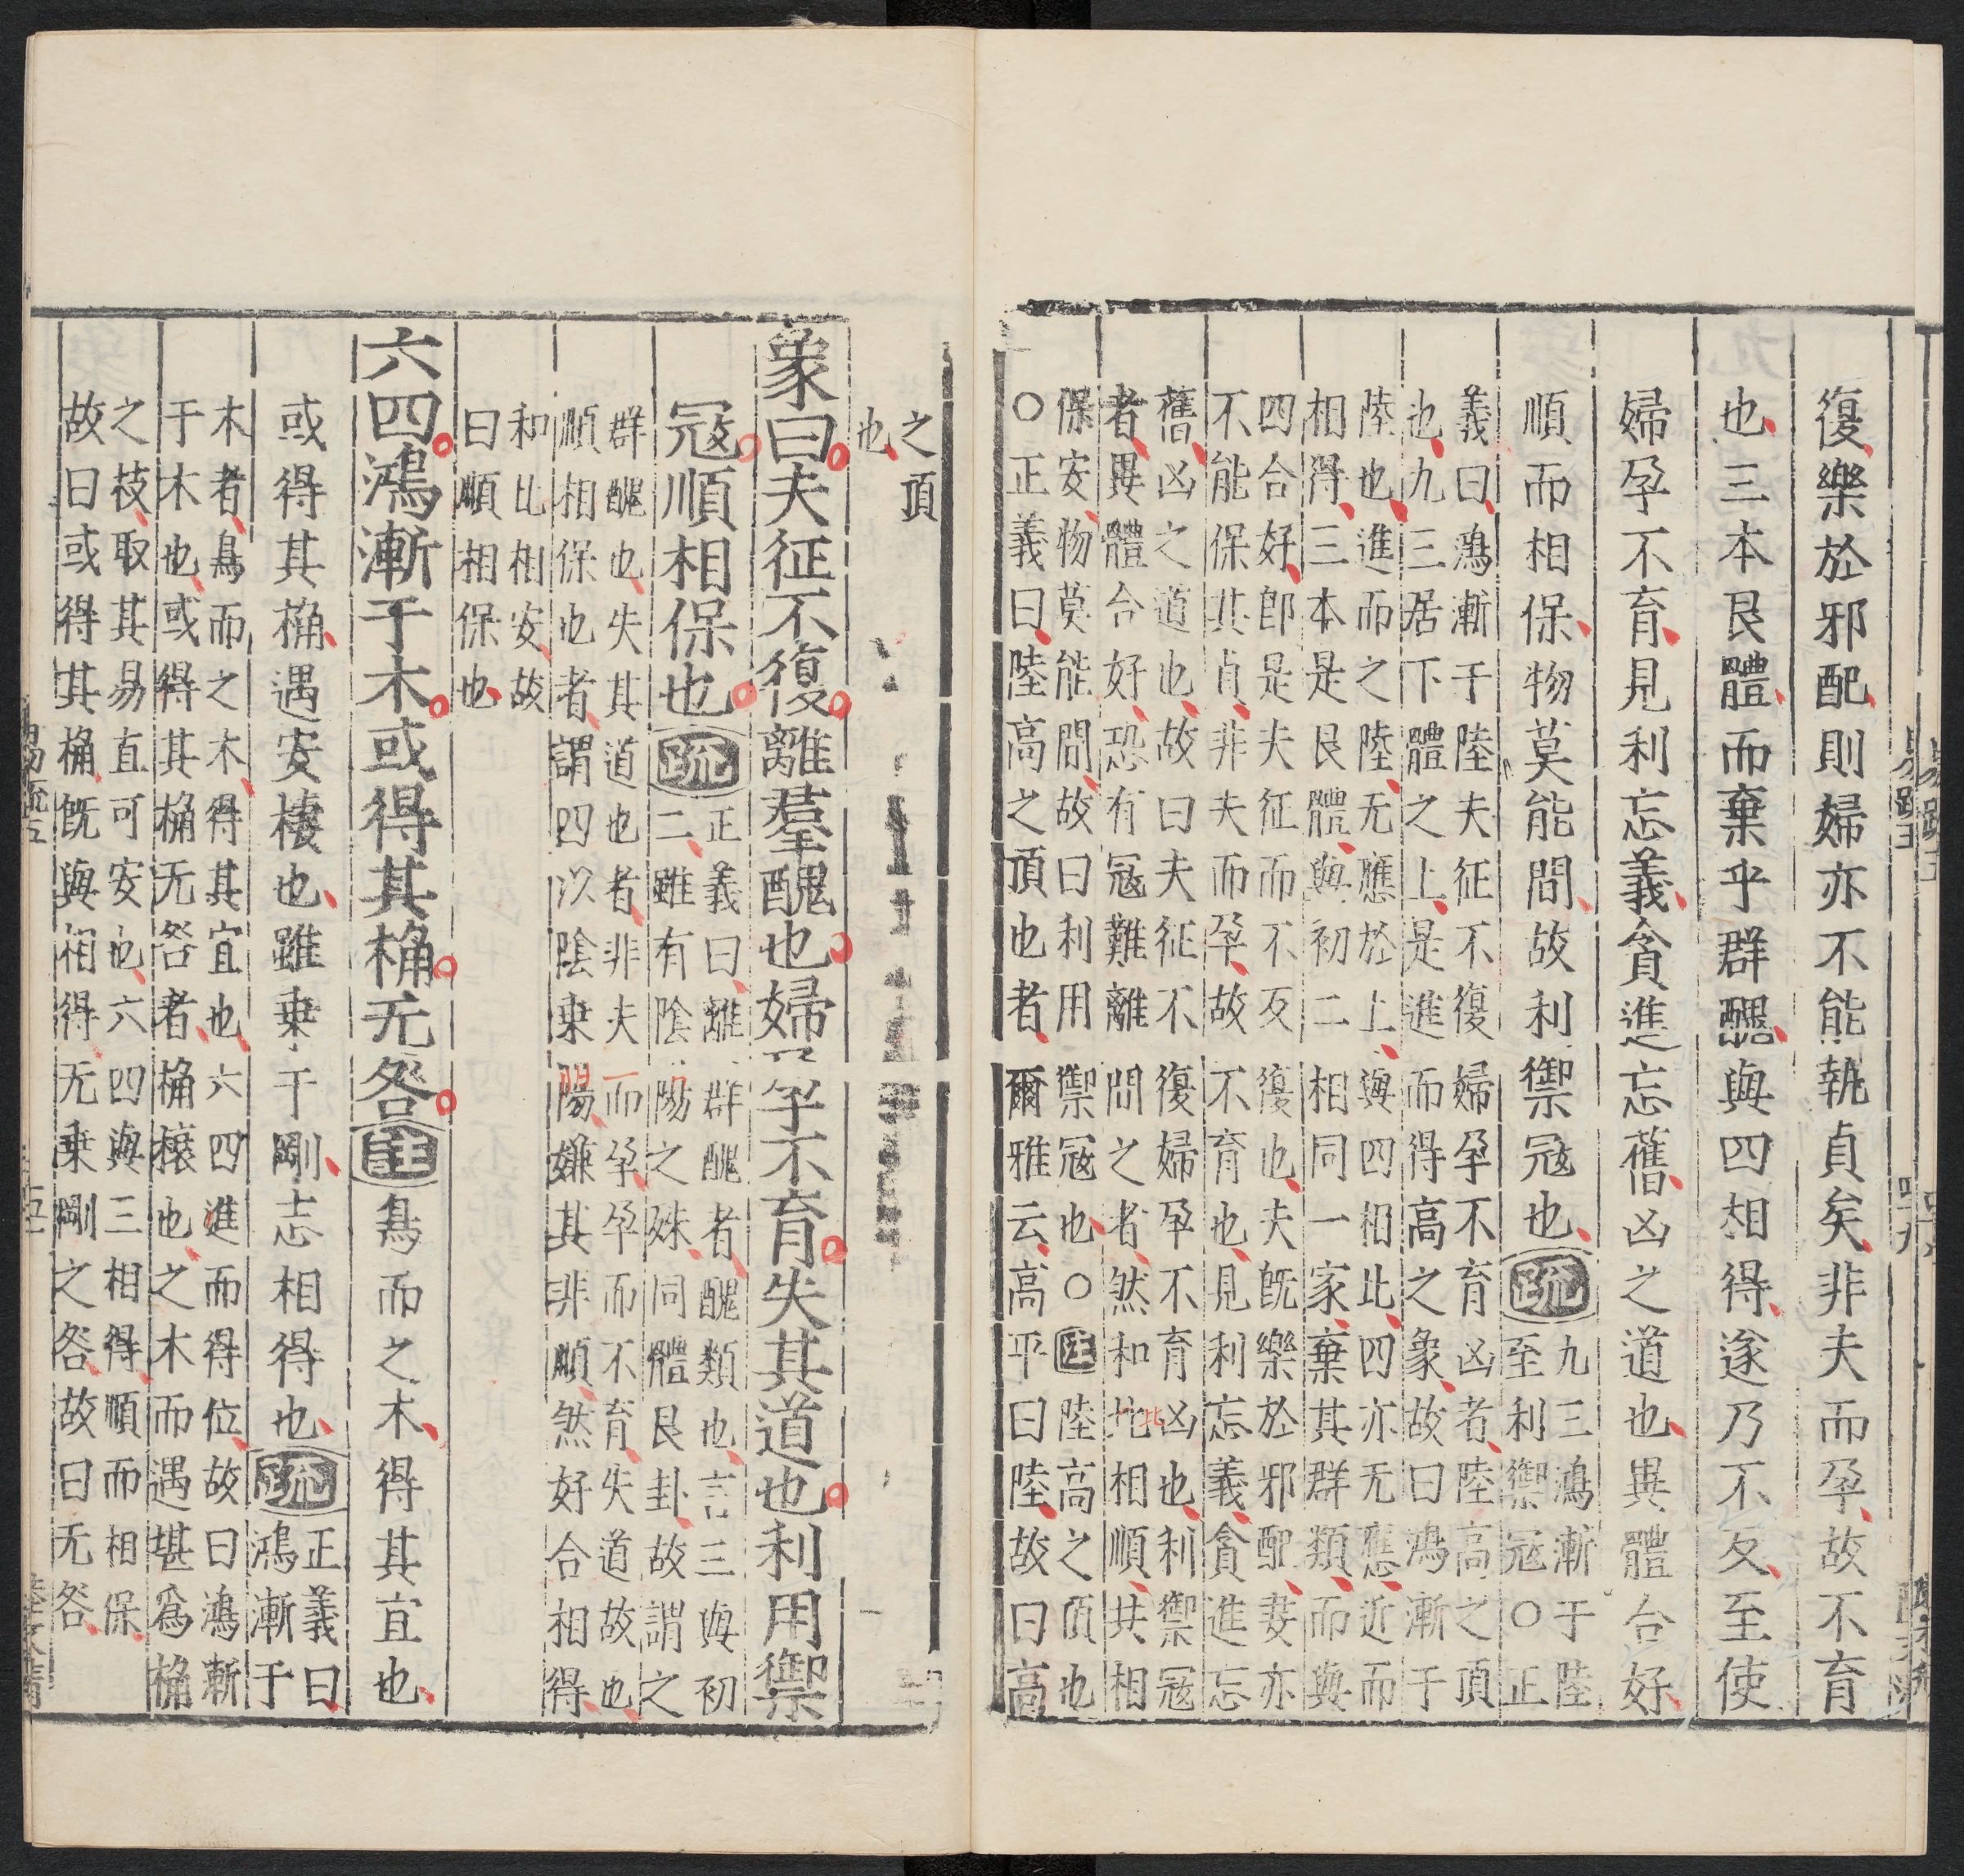 復樂於邪配則婦亦不能執貞矣非夫而孕故不育
也三本艮體而棄乎群醜與四相得遂乃不反至使
婦孕不育見利忘義貪進忘舊凶之道也異體合好
順而相保物莫能間故利禦寇也疏
九三鴻漸于陸
至利禦寇○正
義曰鴻漸于陸夫征不復婦孕不育凶者陸高之頂
也九三居下體之上是進而得高之象故曰鴻漸于
陸也進而之陸无應於上與四相比四亦无應近而
相得三本是艮體與初二相同一家棄其群類而與
四合好即是夫征而不反復也夫既樂於邪配妻亦
不能保其貞非夫而孕故不育也見利忘義貪進忘
舊凶之道也故曰夫征不復婦孕不育凶也利禦寇
者異體合好恐有寇難離間之者然和比相順共相
保安物莫能間故曰利用禦寇也○注陸高之頂也
○正義曰陸高之頂也者爾雅云高平曰陸故曰高
之頂
也
象曰夫征不復離羣醜也婦孕不育失其道也利用禦
寇順相保也疏
正義曰離群醜者醜類也言三與初
二雖有陰陽之殊同體艮卦故謂之
群醜也失其道也者非夫而孕孕而不育失道故也
順相保也者謂四以陰乗陽嫌其非順然好合相得
和比相安故
曰順相保也
六四鴻漸于木或得其桷无咎注鳥而之木得其宜也
或得其桷遇安棲也雖乗于剛志相得也疏
正義曰
鴻漸于
木者鳥而之木得其宜也六四進而得位故曰鴻漸
于木也或得其桷无咎者桷榱也之木而遇堪爲桷
之枝取其易直可安也六四與三相得順而相保
故曰或得其桷既與相得无乗剛之咎故曰无咎